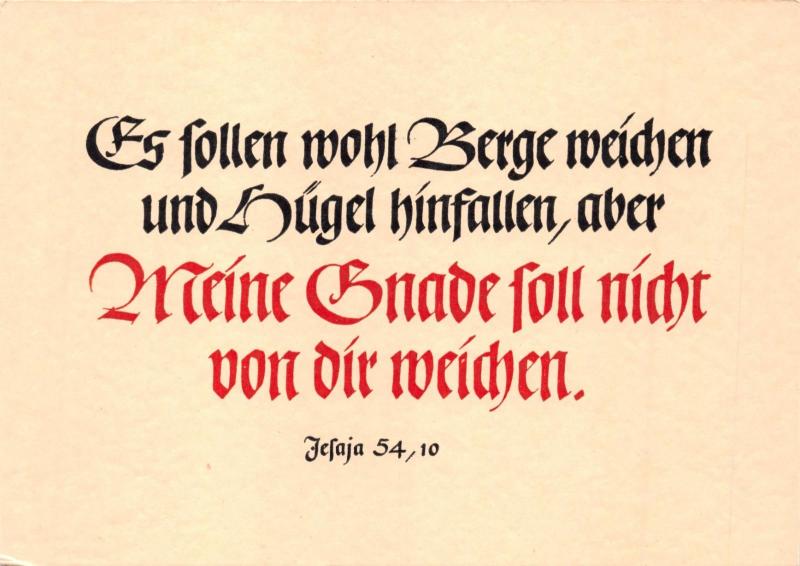 Es sollen wohl Berge weichen
und Hügel hinfallen, aber
Meine Gnade soll nicht
von dir weichen.
Jesaja 54,10